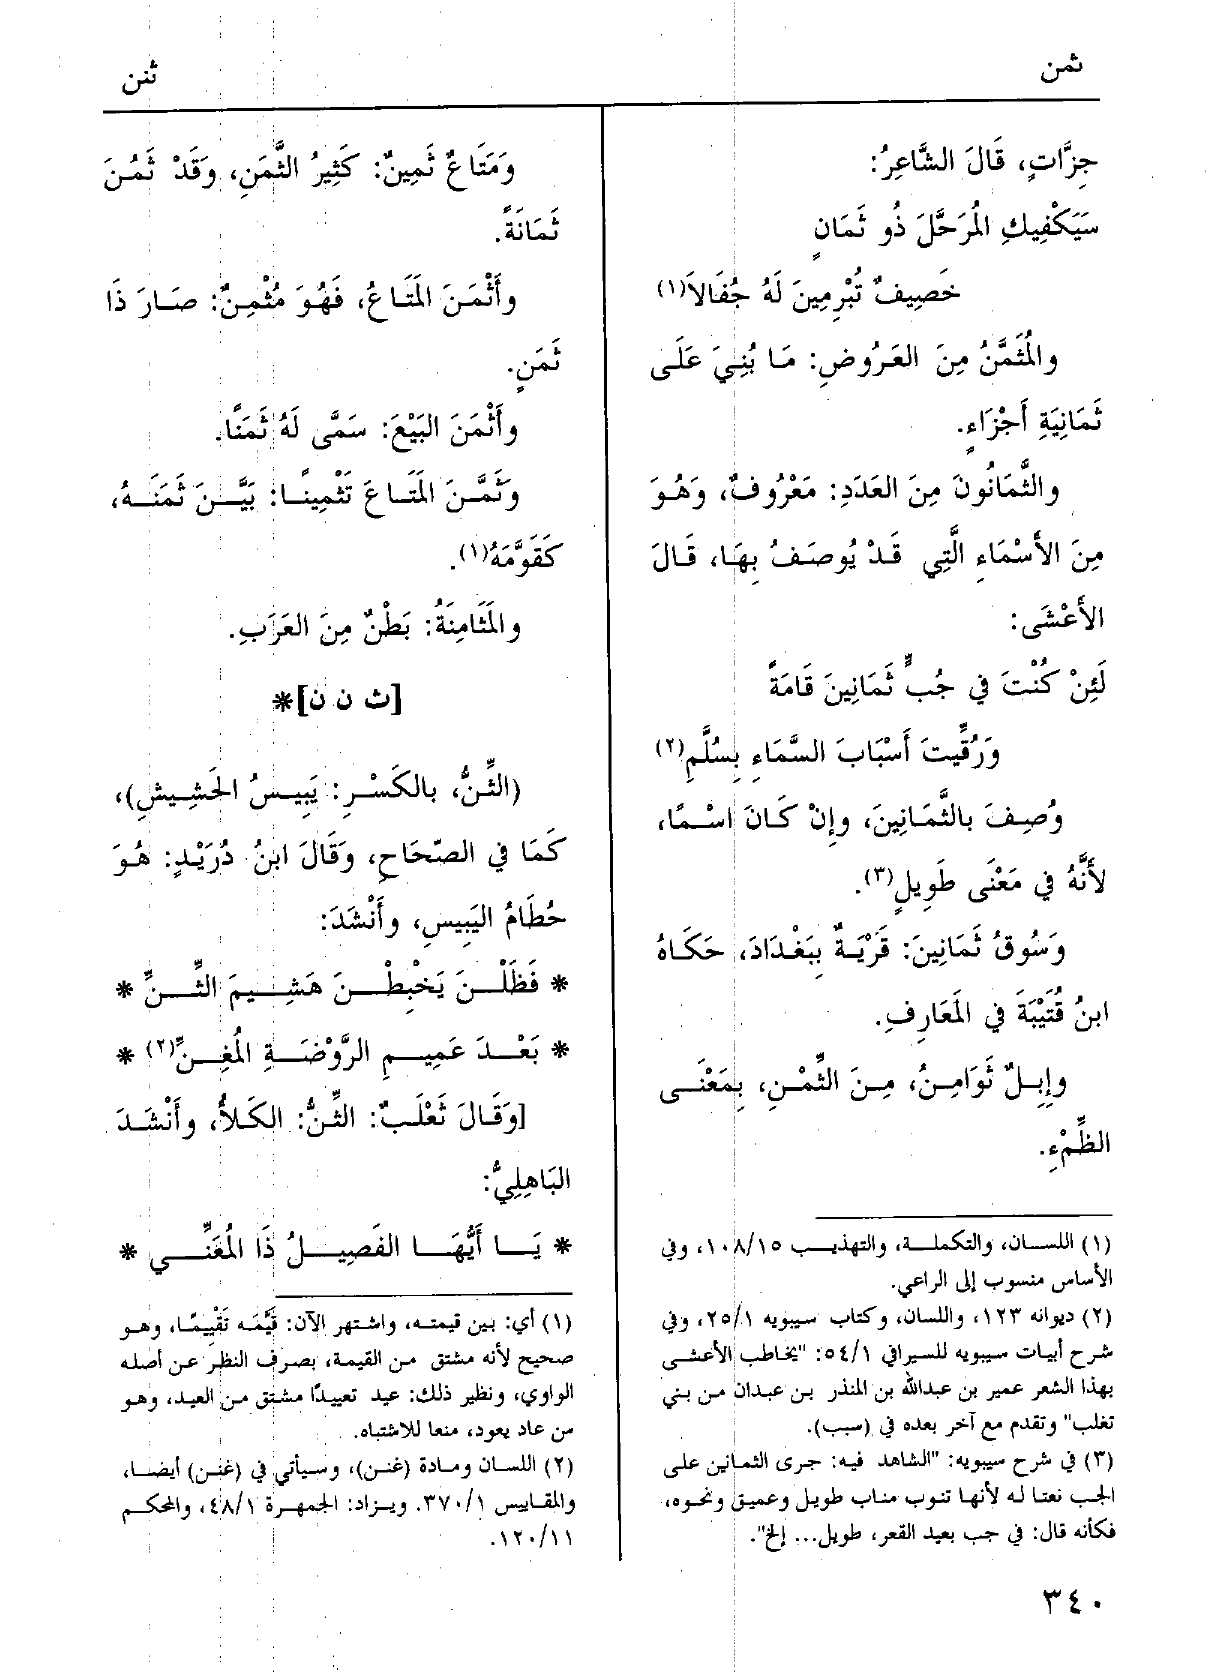 ثمن
ثنن
جِزَّاتٍ، قَالَ الشَّاعِرُ:
سَيَكْفِيكِ المُرَحَّلَ ذُو ثَمَانٍ
خَصِيفٌ تُبْرِمِينَ لَهُ جُفَالاَ(١)
والمُثَمَّنُ مِنَ العَرُوضِ: مَا بُنِيَ عَلَى
ثَمَانِيَةِ أَجْزَاءٍ.
والثَّمَانُونَ مِنَ العَدَدِ: مَعْرُوفٌ، وَهُوَ
مِنَ الأَسْمَاءِ الَّتِي قَدْ يُوصَفُ بِهَا، قَالَ
الأَعْشَى:
لَئِنْ كُنْتَ في جُبٍّ ثَمَانِينَ قَامَةً
وَرُقِّيتَ أَسْبَابَ السَّمَاءِ بِسُلَّمِ(٢)
وُصِفَ بالثَّمَانِينَ، وإِنْ كَانَ اسْمًا،
لأَنَّهُ في مَعْنَى طَوِيلٍ(٣).
وَسُوقُ ثَمَانِينَ: قَرْيَةٌ بِبَغْدَادَ، حَكَاهُ
ابنُ قُتَيْبَةَ في المَعَارِفِ.
وإِبِلٌ ثَوَامِنُ، مِنَ الثِّمْنِ، بِمَعْنَى
الظِّمْءِ.
(١) اللسان، والتكملة، والتهذيب ١٠٨/١٥، وفي
الأساس منسوب إلى الراعي.
(٢) ديوانه ١٢٣، واللسان، وكتاب سيبويه ٢٥/١، وفي
شرح أبيات سيبويه للسيرافي ٥٤/١: "يخاطب الأعشى
بهذا الشعر عمير بن عبدالله بن المنذر بن عبدان من بني
تغلب" وتقدم مع آخر بعده في (سبب).
(٣) في شرح سيبويه: "الشاهد فيه: جرى الثمانين على
الجب نعتا له لأنها تنوب مناب طويل وعميق ونحوه،
فكأنه قال: في جب بعيد القعر، طويل... إلخ".
وَمَتَاعٌ ثَمِينٌ: كَثِيرُ الثَّمَنِ، وَقَدْ ثَمُنَ
ثَمَانَةً.
وأَثْمَنَ المَتَاعُ، فَهُوَ مُثْمِنٌ: صَارَ ذَا
ثَمَنٍ.
وأَثْمَنَ البَيْعَ: سَمَّى لَهُ ثَمَنًا.
وثَمَّنَ المَتَاعَ تَثْمِينًا: بَيَّنَ ثَمَنَهُ،
كَقَوَّمَهُ(١).
والمَثَامِنَةُ: بَطْنٌ مِنَ العَرَبِ.
[ث ن ن]*
(الثِّنُّ، بالكَسْرِ: يَبِيسُ الحَشِيشِ)،
كَمَا في الصّحَاحِ، وَقَالَ ابنُ دُرَيْدٍ: هُوَ
حُطَامُ اليَبِيسِ، وأَنْشَدَ:
* فَظَلْنَ يَخْبِطْنَ هَشِيمَ الثِّنِّ *
* بَعْدَ عَمِيمِ الرَّوْضَةِ المُغِنِّ(٢) *
[وَقَالَ ثَعْلَبٌ: الثِّنُّ: الكَلأُ، وأَنْشَدَ
البَاهِلِيُّ:
* يَا أَيُّهَا الفَصِيلُ ذَا المُغَنِّي *
(١) أي: بين قيمته، واشتهر الآن: قَيَّمَه تَقْيِيمًا، وهو
صحيح لأنه مشتق من القيمة، بصرف النظر عن أصله
الواوي، ونظير ذلك: عيد تعييدًا مشتق من العيد، وهو
من عاد يعود، منعا للاشتباه.
(٢) اللسان ومادة (غنن)، وسيأتي في (غنن) أيضا،
والمقاييس ٣٧٠/١. ويزاد: الجمهرة ٤٨/١، والمحكم
١٢٠/١١.
٣٤٠